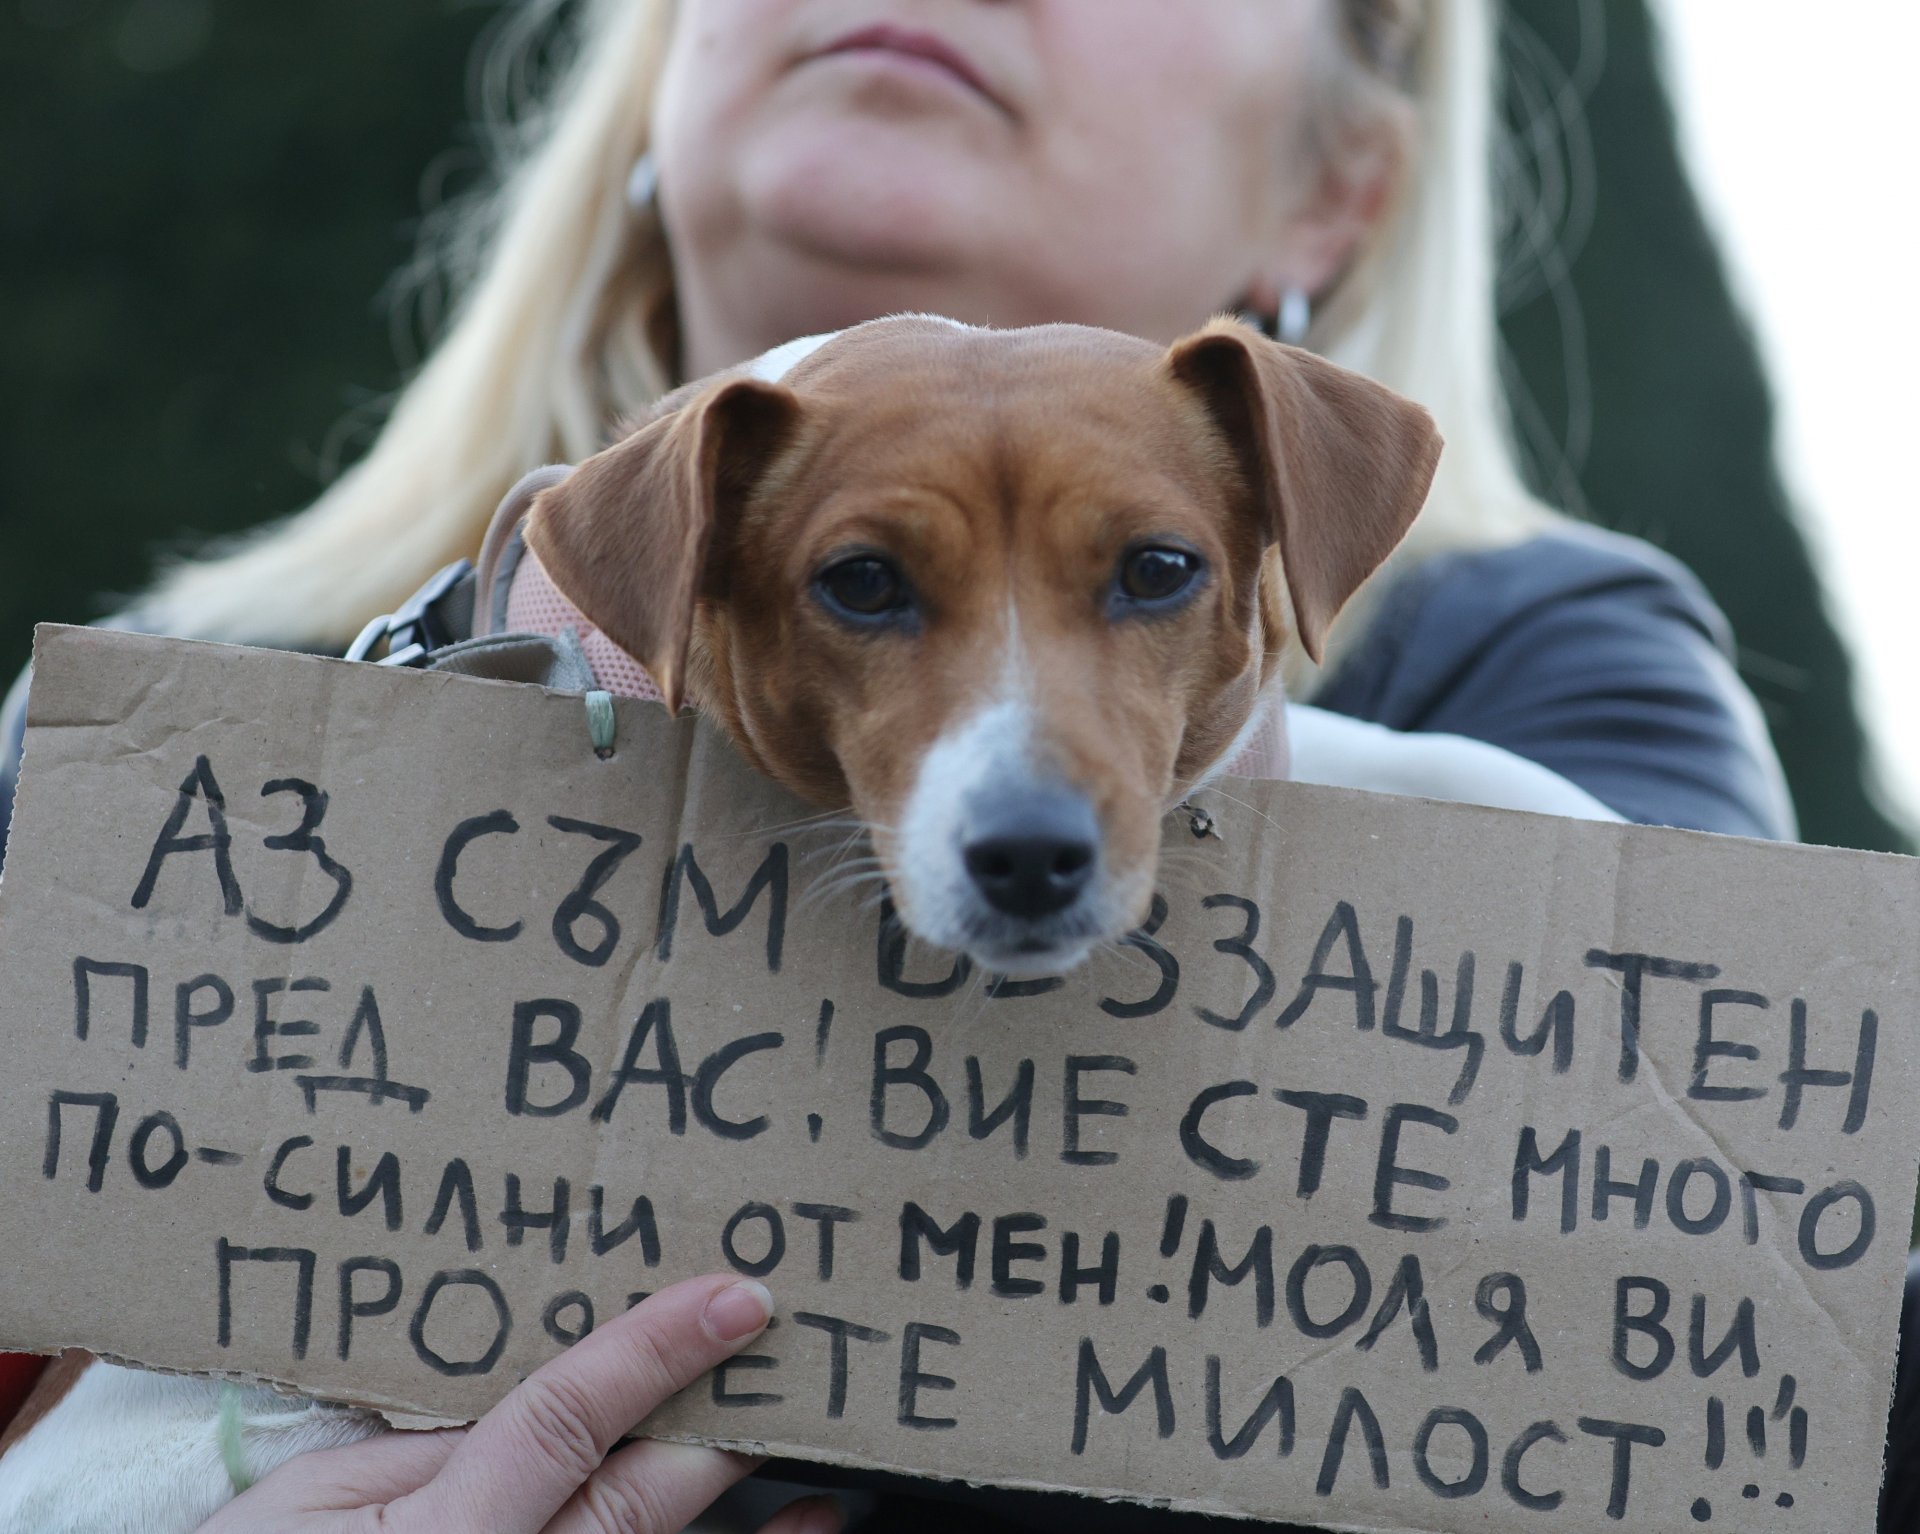 АЗ СЪМ БЕЗЗАЩИТЕН
ПРЕД ВАС! ВИЕ СТЕ МНОГО
ПО-СИЛНИ ОТ МЕН! МОЛЯ ВИ,
ПРОЯВЕТЕ МИЛОСТ!!!